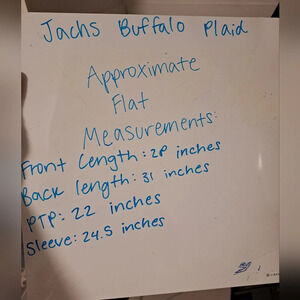 Jachs Buffalo Plaid
Approximate
Flat
Measurements:
Front Length: 28 inches
Back length: 31 inches
PTP: 22 inches
Sleeve: 24.5 inches